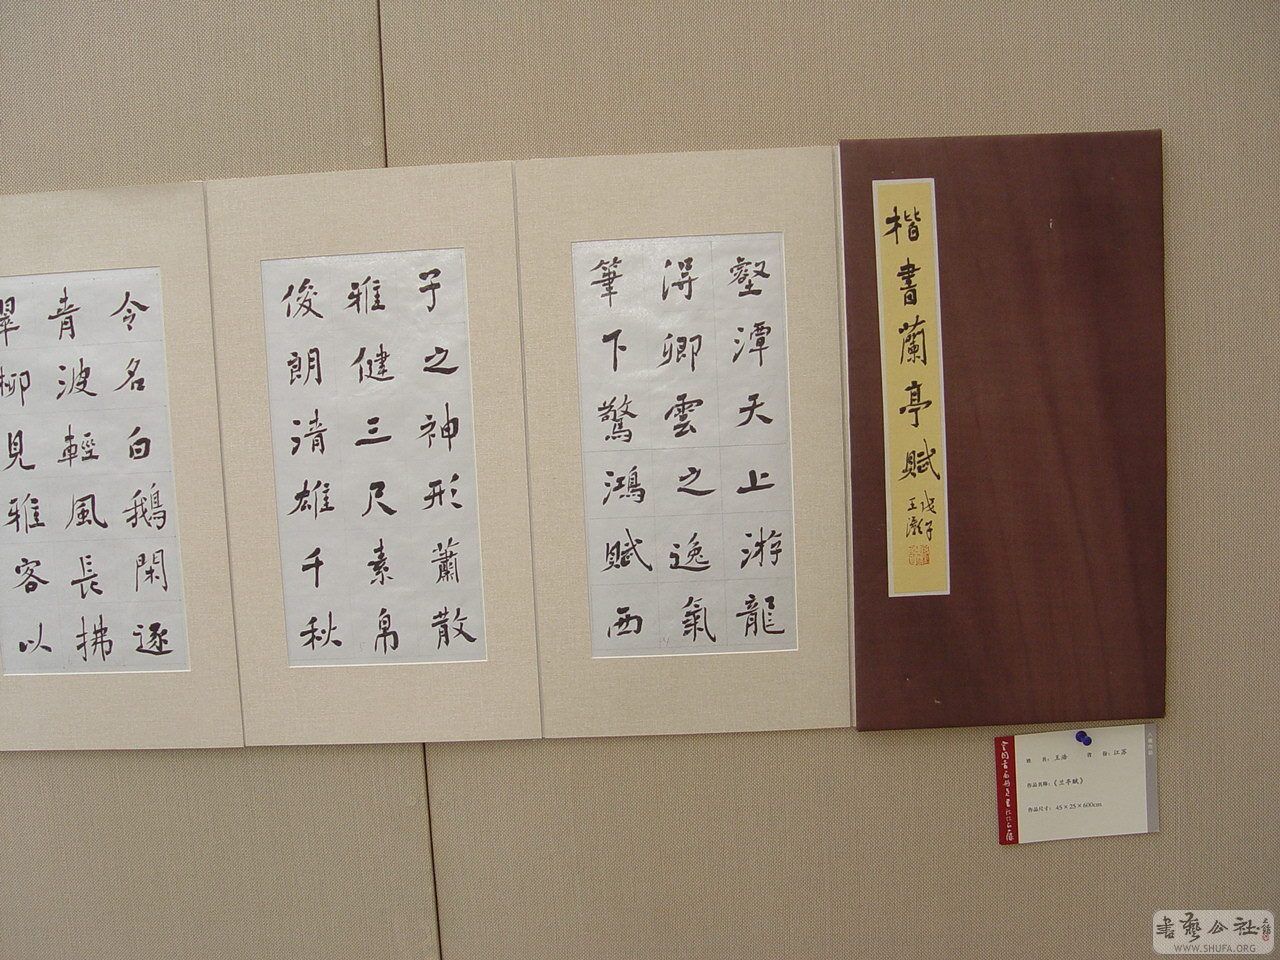 楷書蘭亭賦
壑潭天上游龍
得卿雲之逸氣
筆下驚鴻賦西
子之神形蕭散
雅健三尺素帛
俊朗清雄千秋
令名白鵝閑逐
青波輕風長拂
翠柳見雅客以
姓 名：王浩 省 份：江苏
作品名称：《兰亭赋》
作品尺寸：45×25×600cm
書藝公社
WWW.SHUFA.ORG